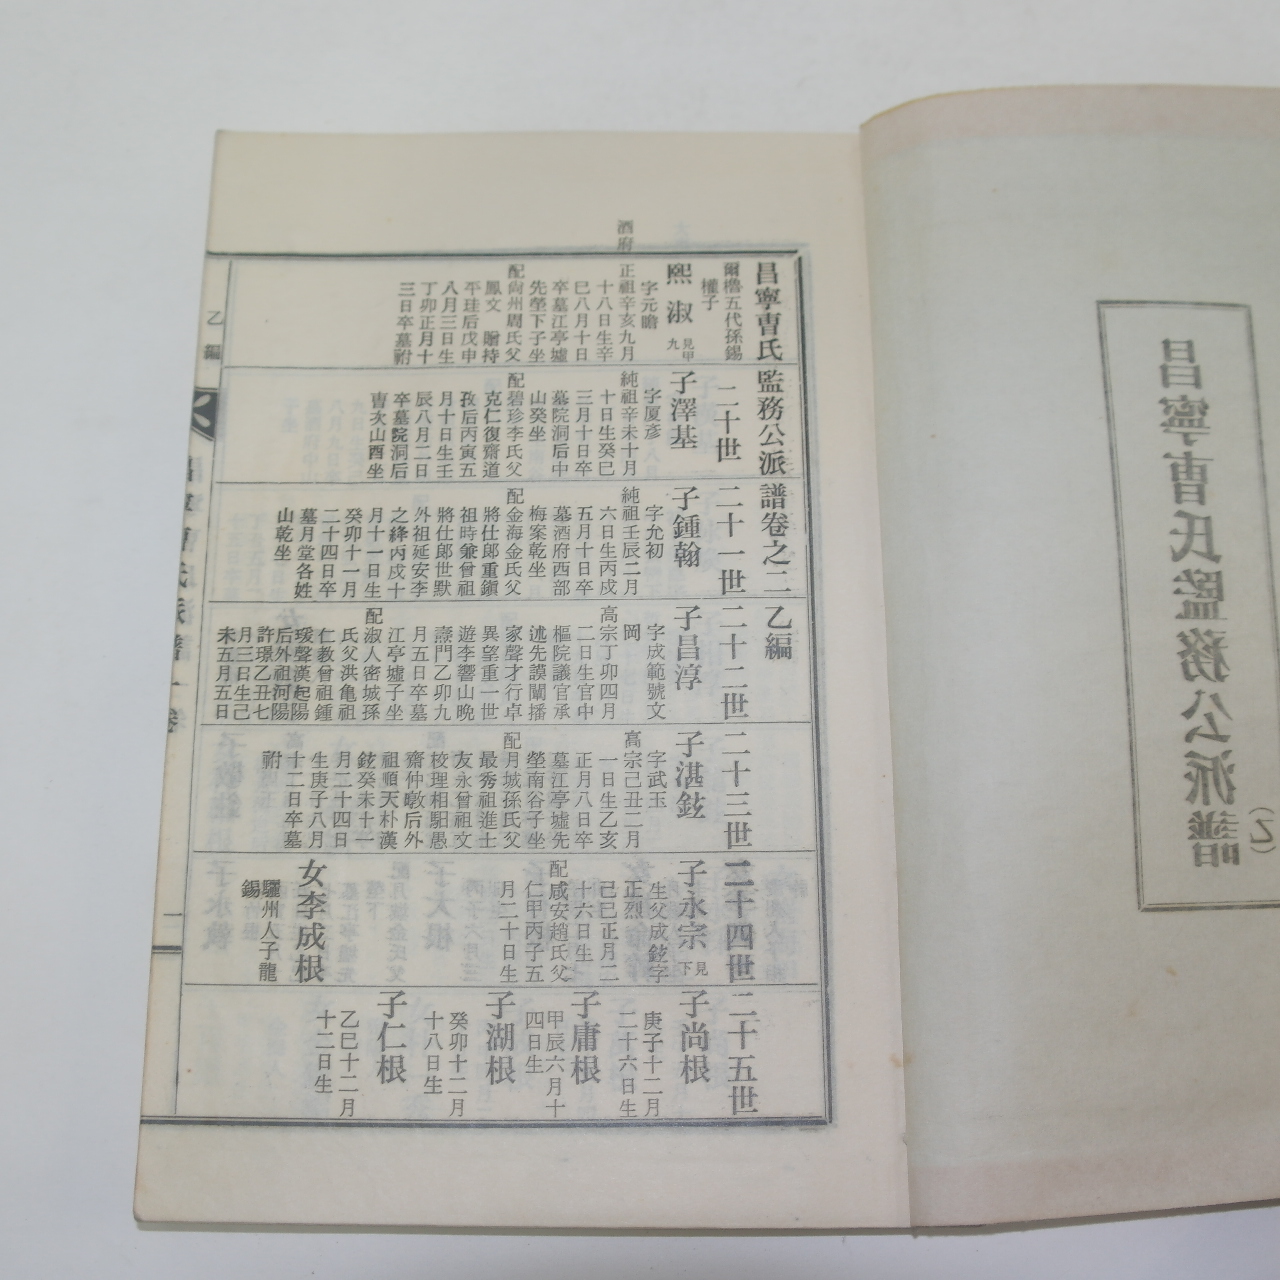 昌寧曺氏監務公派譜
(乙)
昌寧曺氏監務公派譜卷之二乙編
爾櫓五代孫錫
權子
熙淑
見甲
九
字元瞻
酒府
正祖辛亥九月
十八日生辛
巳八月十日
卒墓江亭墟
先塋下子坐
配尙州周氏父
鳳文贈持
平珪后戊申
八月三日生
丁卯正月十
三日卒墓祔
二十世
子澤基
字厦彦
純祖辛未十月
十日生癸巳
三月十日卒
墓院洞后中
山癸坐
配碧珍李氏父
克仁復齋道
孜后丙寅五
月十日生壬
辰八月二日
卒墓院洞后
曺次山酉坐
二十一世
子鍾翰
字允初
純祖壬辰二月
六日生丙戍
五月十日卒
墓酒府西部
梅案乾坐
配金海金氏父
將仕郞重鎭
祖時兼曾祖
將仕郞世默
外祖延安李
之絳丙戍十
月十一日生
癸卯十一月
二十四日卒
墓月堂各姓
山乾坐
二十二世
子昌淳
字成範號文
岡
高宗丁卯四月
二日生官中
樞院議官承
述先謨闡播
家聲才行卓
異望重一世
遊李響山晩
壽門乙卯九
月五日卒墓
江亭墟子坐
配淑人密城孫
氏父洪龜祖
仁教曾祖鍾
瑗聲漢起陽
后外祖河陽
許璟乙丑七
月三日生己
未五月五日
二十三世
子湛鉉
字武玉
高宗己丑二月
一日生乙亥
正月八日卒
墓江亭墟先
塋南谷子坐
配月城孫氏父
最秀祖進士
友永曾祖文
校理相馹愚
齋仲暾后外
祖順天朴漢
鉉癸未十一
月二十四日
生庚子八月
十二日卒墓
祔
二十四世
子永宗
見
下
生父成鉉字
正烈
己巳正月二
十六日生
配咸安趙氏父
仁甲丙子五
月二十日生
女李成根
驪州人子龍
錫
二十五世
子尚根
庚子十二月
二十六日生
子庸根
甲辰六月十
四日生
子湖根
癸卯十二月
十八日生
子仁根
乙巳十二月
十二日生
乙編
昌寧曺氏派譜二卷
一